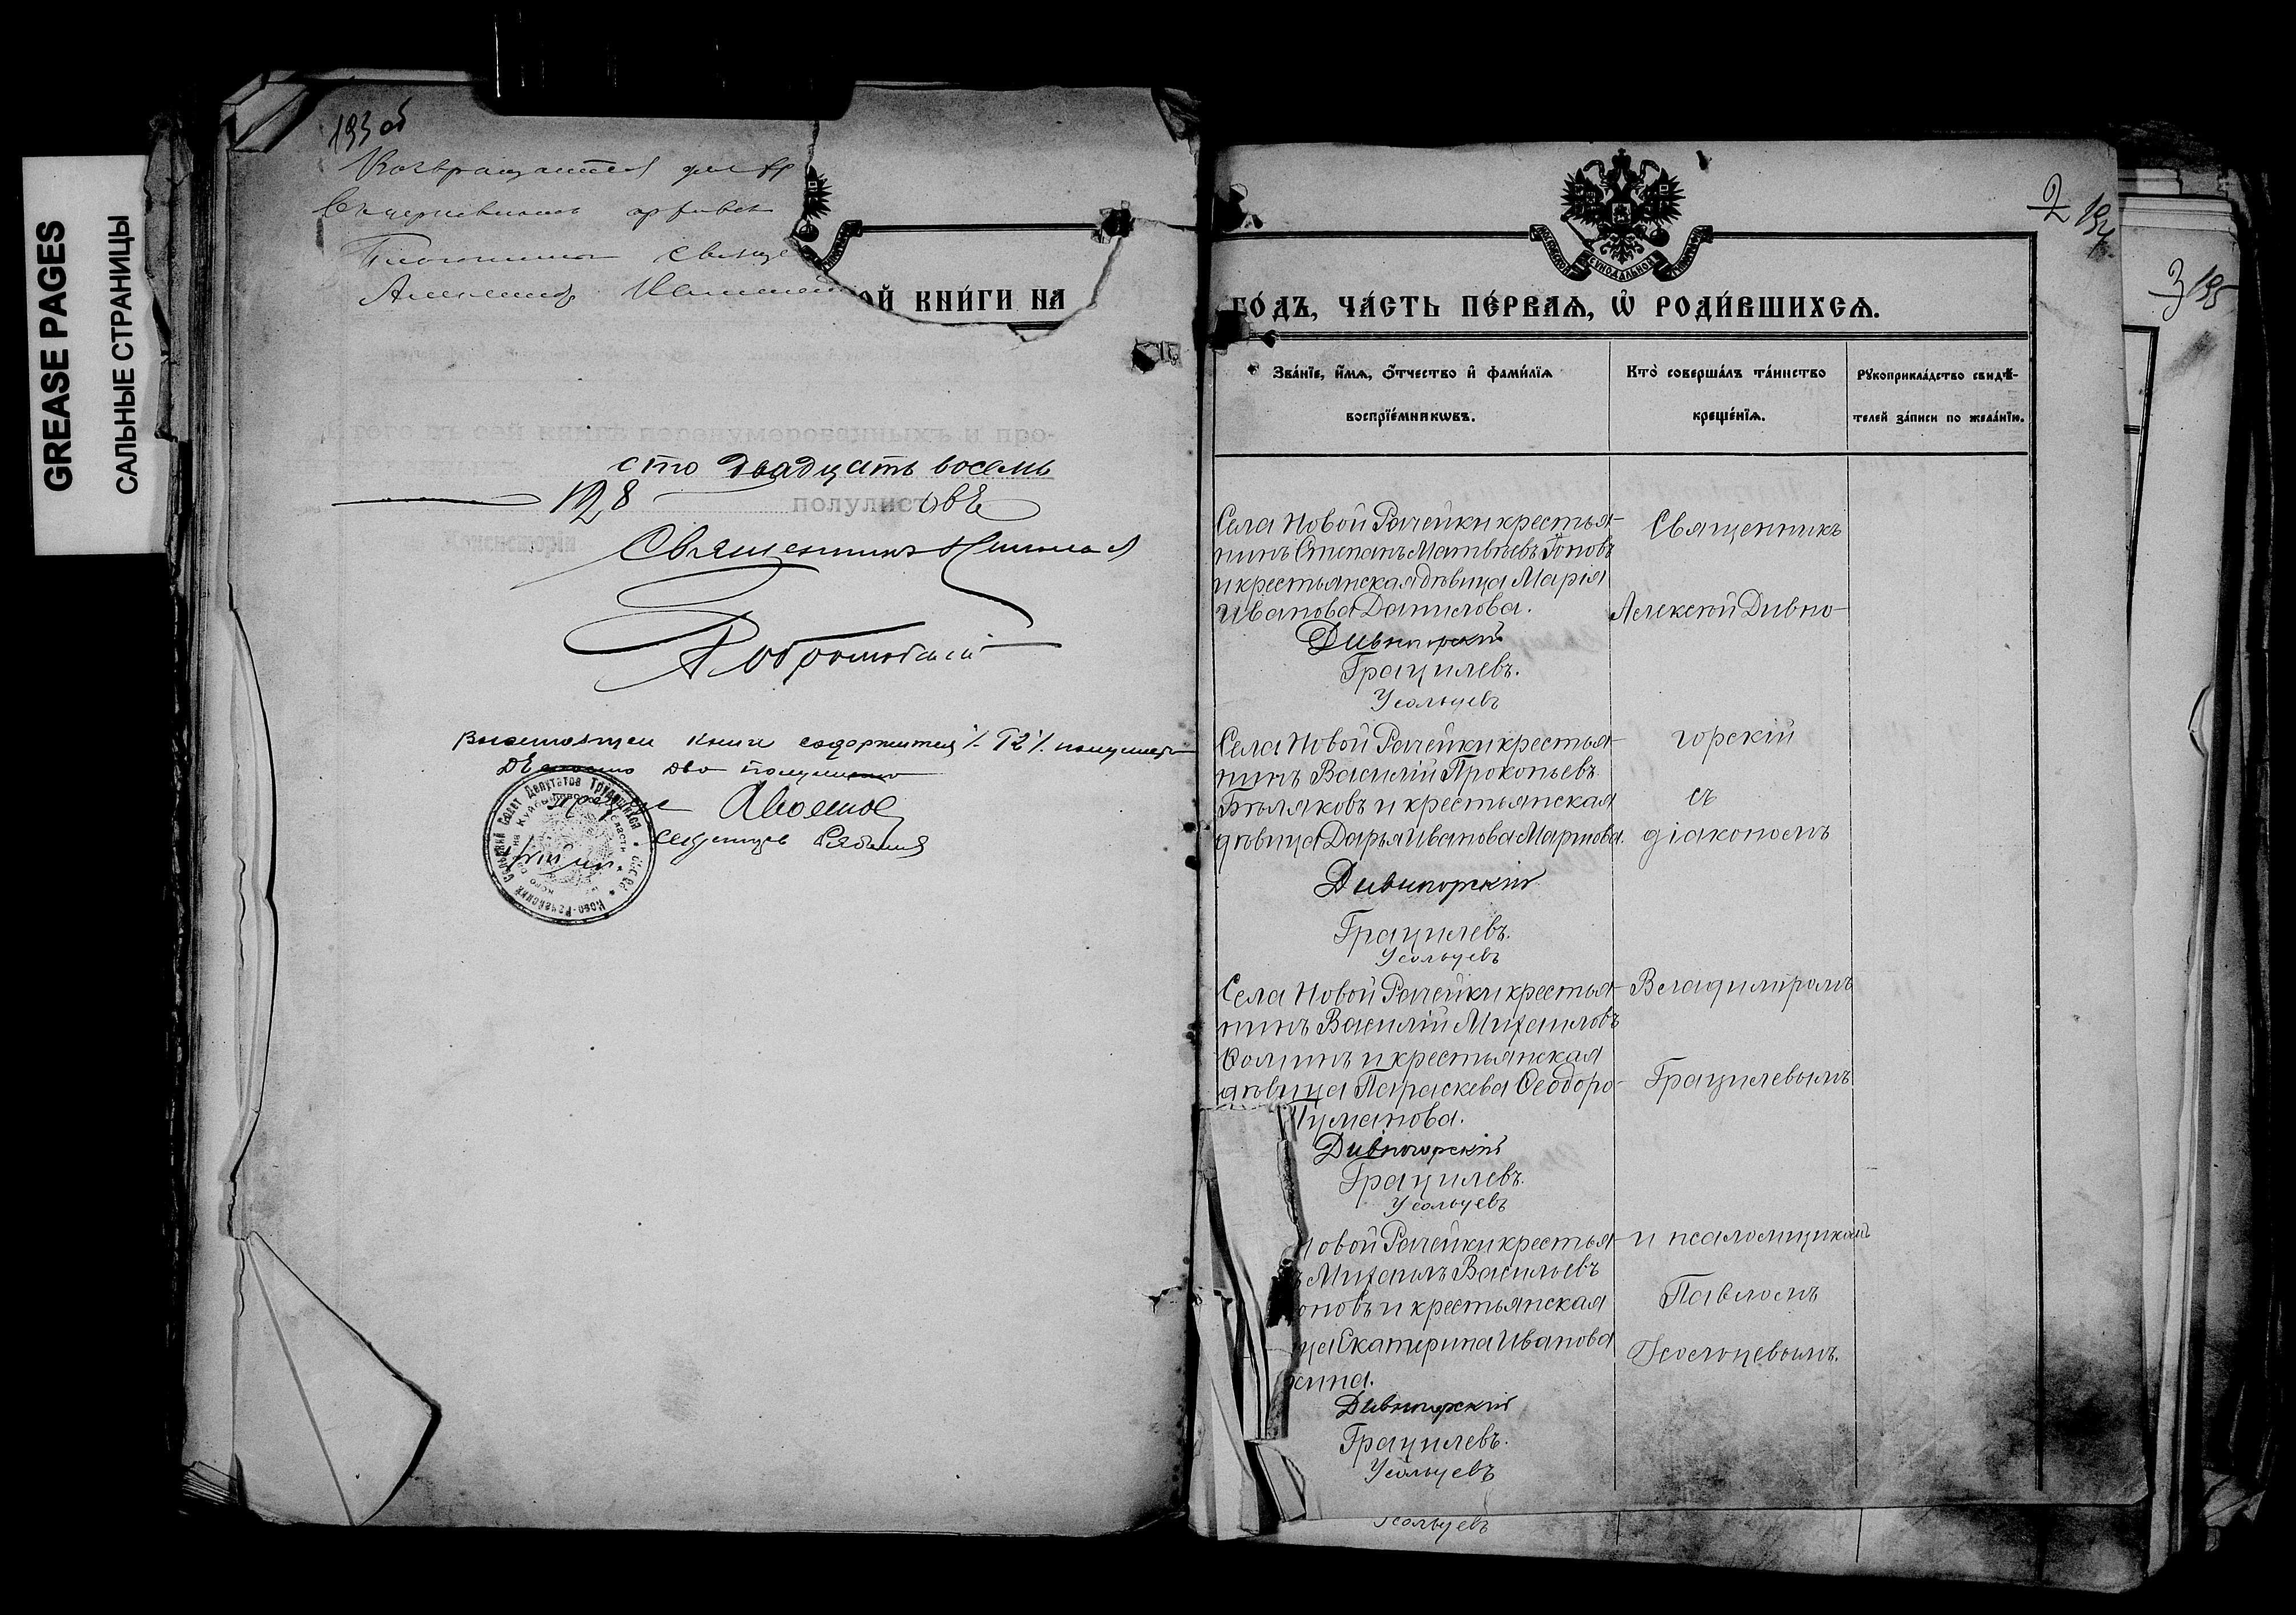 GREASE PAGES
САЛЬНЫЕ СТРАНИЦЫ
193 об
Возвращается для
архивѣ
ОЙ КНИ́ГИ НА
Итого въ сей книгѣ перенумерованныхъ и про-
сто двадцать восемь
128 полулистовъ
Консисторіи
Священникъ Николай
Добромобскій
В настоящей книги содержится /. 92 /.
Девяносто два
Секретарь
2 194
3 195
ГО́ДЪ, ЧА́СТЬ ПЕ́РВАѦ, Ѿ РОДИ́ВШИХСѦ.
Зва́нїе, и́мѧ, о́тчество и фами́лїѧ
воспрїе́мникѡвъ.
Кто̀ соверша́лъ та́инство
креще́нїѧ.
Рукоприкла́дство свидѣ́-
телей за́писи по жела́нїю.
Села Новой Рачейки крестья-
нинъ Степанъ Матвѣевъ Поповъ
и крестьянская дѣвица Марія
Иванова Данилова.
Дивногорскій
Грацилевъ.
Усольцевъ
Священникъ
Алексѣй Дивно-
Села Новой Рачейки крестья-
нинъ Василій Прокопьевъ
Бѣляковъ и крестьянская
дѣвица Дарья Иванова Маркова.
Дивногорскій
Грацилевъ.
Усольцевъ
горскій
съ
діакономъ
Села Новой Рачейки крестья-
нинъ Василій Михаиловъ
Ѳоминъ и крестьянская
дѣвица Параскева Ѳеодоро-
Туманова.
Дивногорскій
Грацилевъ.
Усольцевъ
Владиміромъ
Грацилевымъ
овой Рачейки крестья-
ъ Михаилъ Васильевъ
оновъ и крестьянская
ца Екатерина Иванова
кина.
Дивногорскій
Грацилевъ.
Усольцевъ
и псаломщикомъ
Павломъ
Усольцевымъ.
Усольцевъ